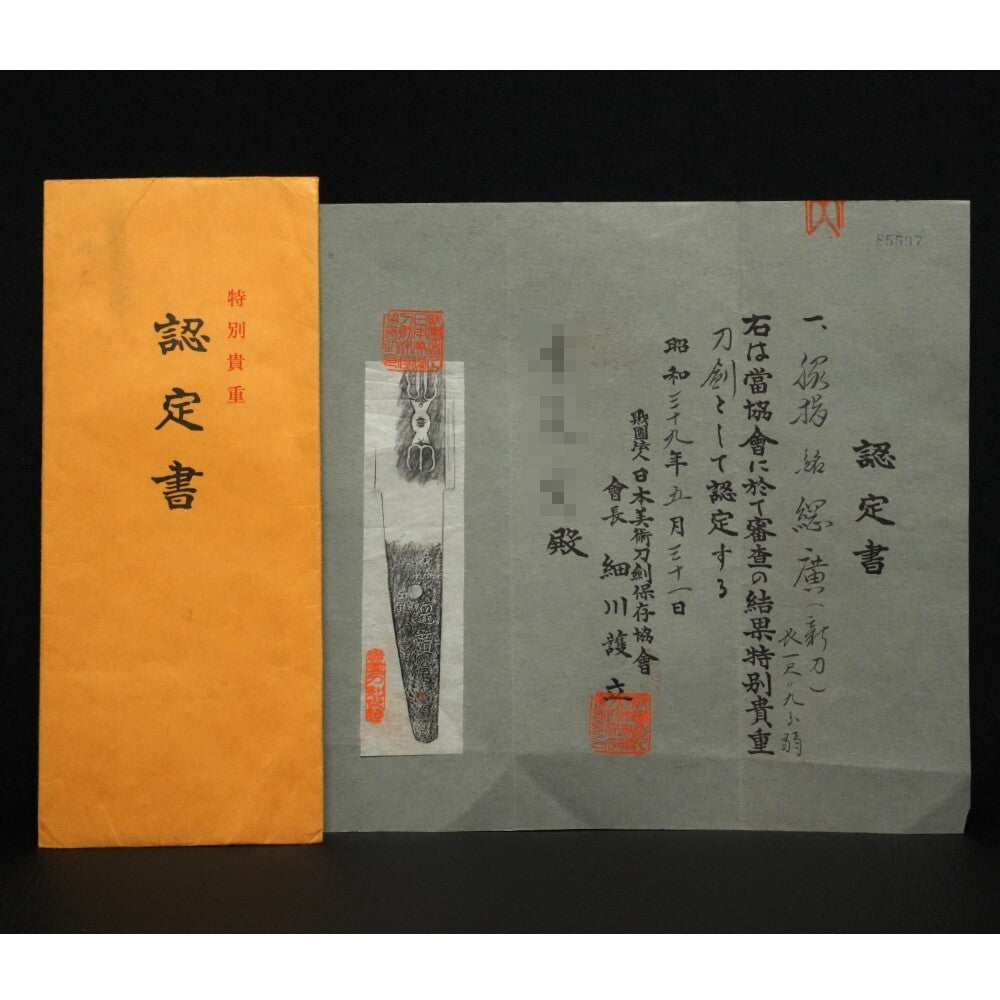 特別貴重
認定書
85507
認定書
一、脇指 銘 総廣(新刀)
長一尺〇九分弱
右は當協會に於て審査の結果特別貴重
刀劍として認定する
昭和三十九年五月三十一日
財團法人日本美術刀劍保存協會
會長 細川護立
殿